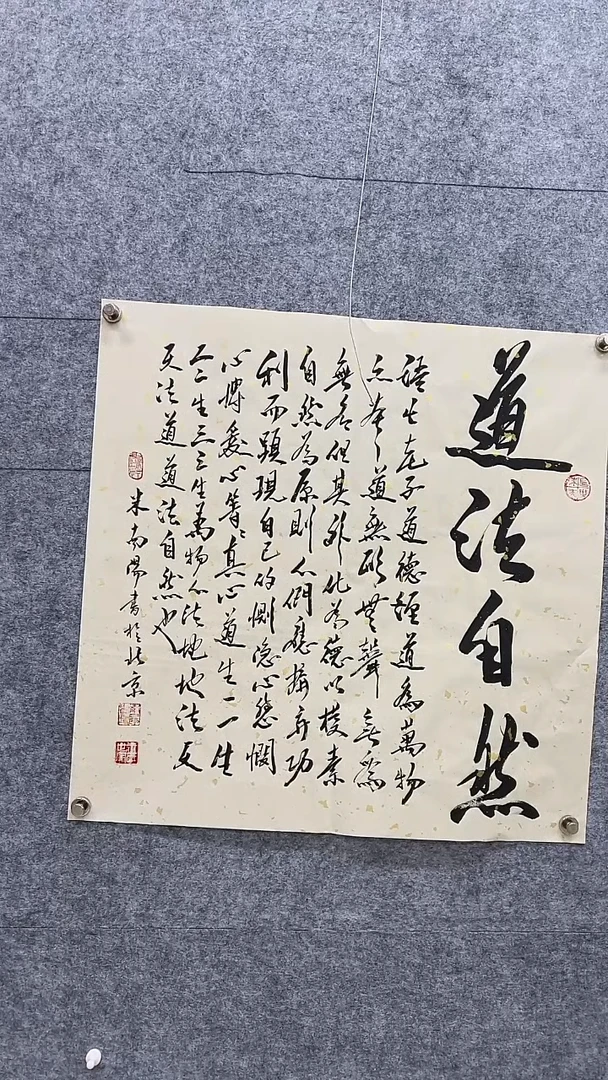 道法自然
語出老子道德經道為萬物
之本道無形無聲無為
無名但其外化為德以樸素
自然為原則人們應摒弃功
利而顯現自己的惻隱心慈憫
心博愛心善心真心道生一一生
二二生三三生萬物人法地地法天
天法道道法自然也
米南陽書於北京